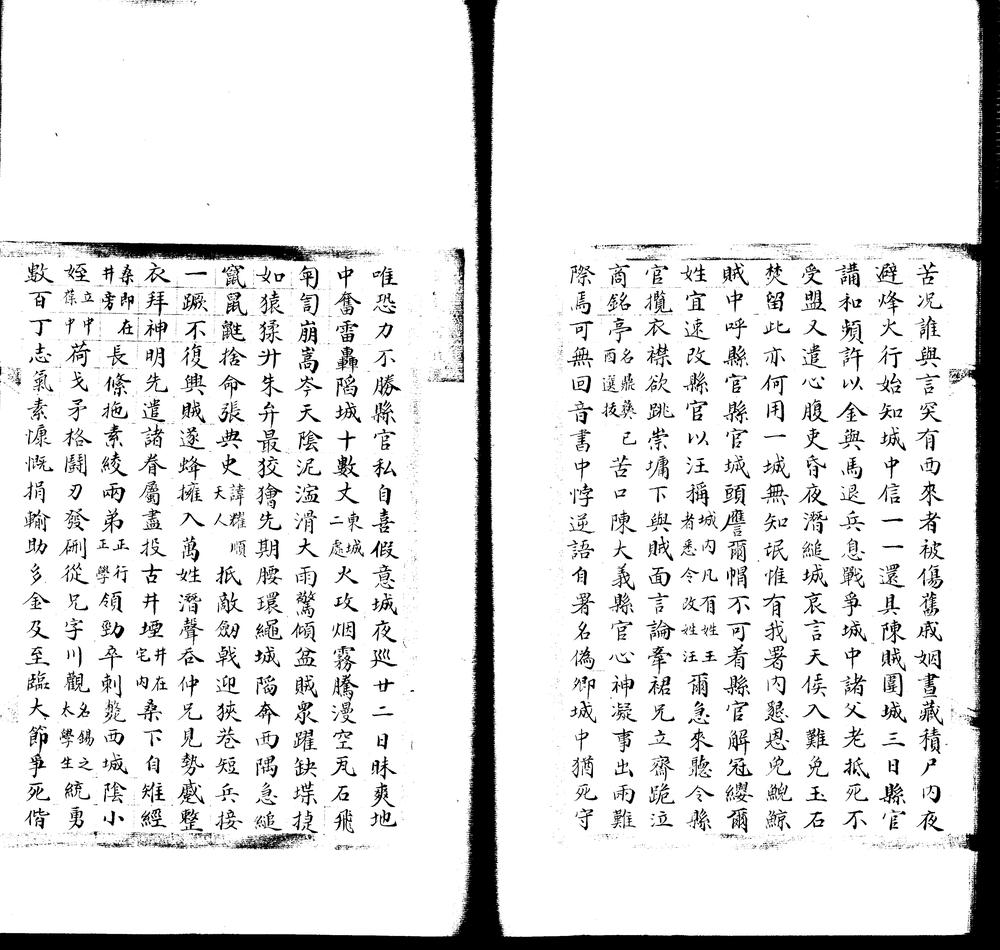 苦况誰與言突有西來者被傷舊戚姻晝藏積尸内夜
避烽火行始知城中信一一還具陳賊圍城三日縣官
講和頻許以金與馬退兵息戰爭城中諸父老抵死不
受盟又遣心腹吏昏夜潛縋城哀言天俟入難免玉石
焚留此亦何用一城無知氓惟有我署内懇恩免鯢鯨
賊中呼縣官縣官城頭譍爾帽不可着縣官解冠纓爾
姓宜速改縣官以汪稱城内凡有姓王者悉令改姓汪爾急來聽令縣
官攬衣襟欲跳崇墉下與賊面言論牽裙兄立齋跪泣
商銘亭名鼎彝酉選拔已苦口陳大義縣官心神凝事出兩難
際馬可無回音書中悖逆語自署名偽卿城中猶死守
唯恐力不勝縣官私自喜假意城夜巡廿二日昧爽地
中奮雷轟陷城十數丈東城二處火攻烟霧騰漫空瓦石飛
匉訇崩嵩岑天陰泥濘滑大雨驚傾盆賊衆躍缺堞捷
如猿猱升朱弁最狡獪先期腰環繩城陷奔西隅急縋
竄鼠鼪捨命張典史諱耀順天人抵敵劒戟迎狹巷短兵接
一蹶不復興賊遂蜂擁入萬姓潛聲吞仲兄見勢蹙整
衣拜神明先遣諸眷屬盡投古井堙井在宅内桑下自雉經
桑即在井旁長條拖素綾兩弟正行正學領勁卒刺斃西城陰小
姪立中葆中荷戈矛格鬪刃發硎從兄字川觀名錫之太學生統勇
數百丁志氣素慷慨捐輸助多金及至臨大節爭死偕